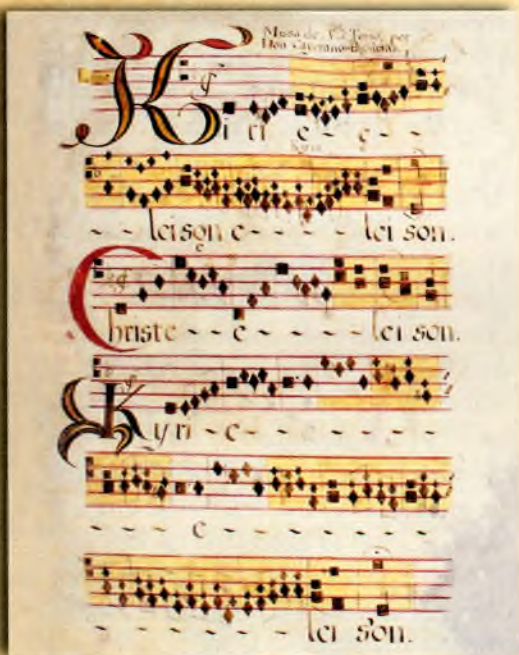 Missa de
Don Cayetano
Kiri e - e - -
- - leison e - - - - lei son.
Christe - - e - - - - lei son.
Kyri - e - - - - - - -
- - - - e - - - - - -
- - - - - - - lei son.